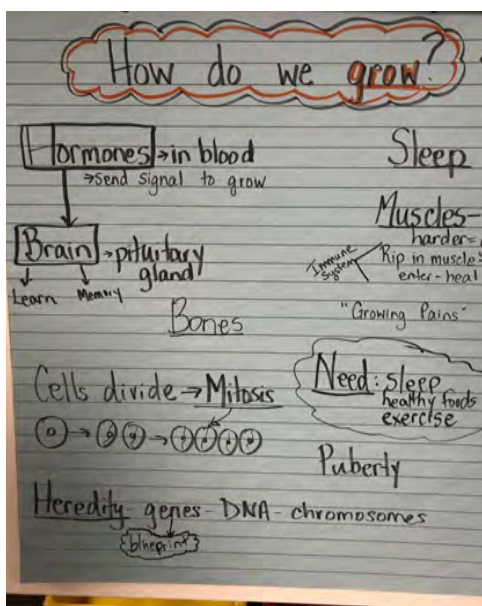 How do we grow?
Hormones → in blood
→ send signal to grow
Brain → pituitary
gland
Learn Memory
Bones
Cells divide → Mitosis
Heredity - genes - DNA - chromosomes
blueprint
Sleep
Muscles -
harder =
Immune
System
Rip in muscle
enter - heal
"Growing Pains"
Need: sleep
healthy foods
exercise
Puberty